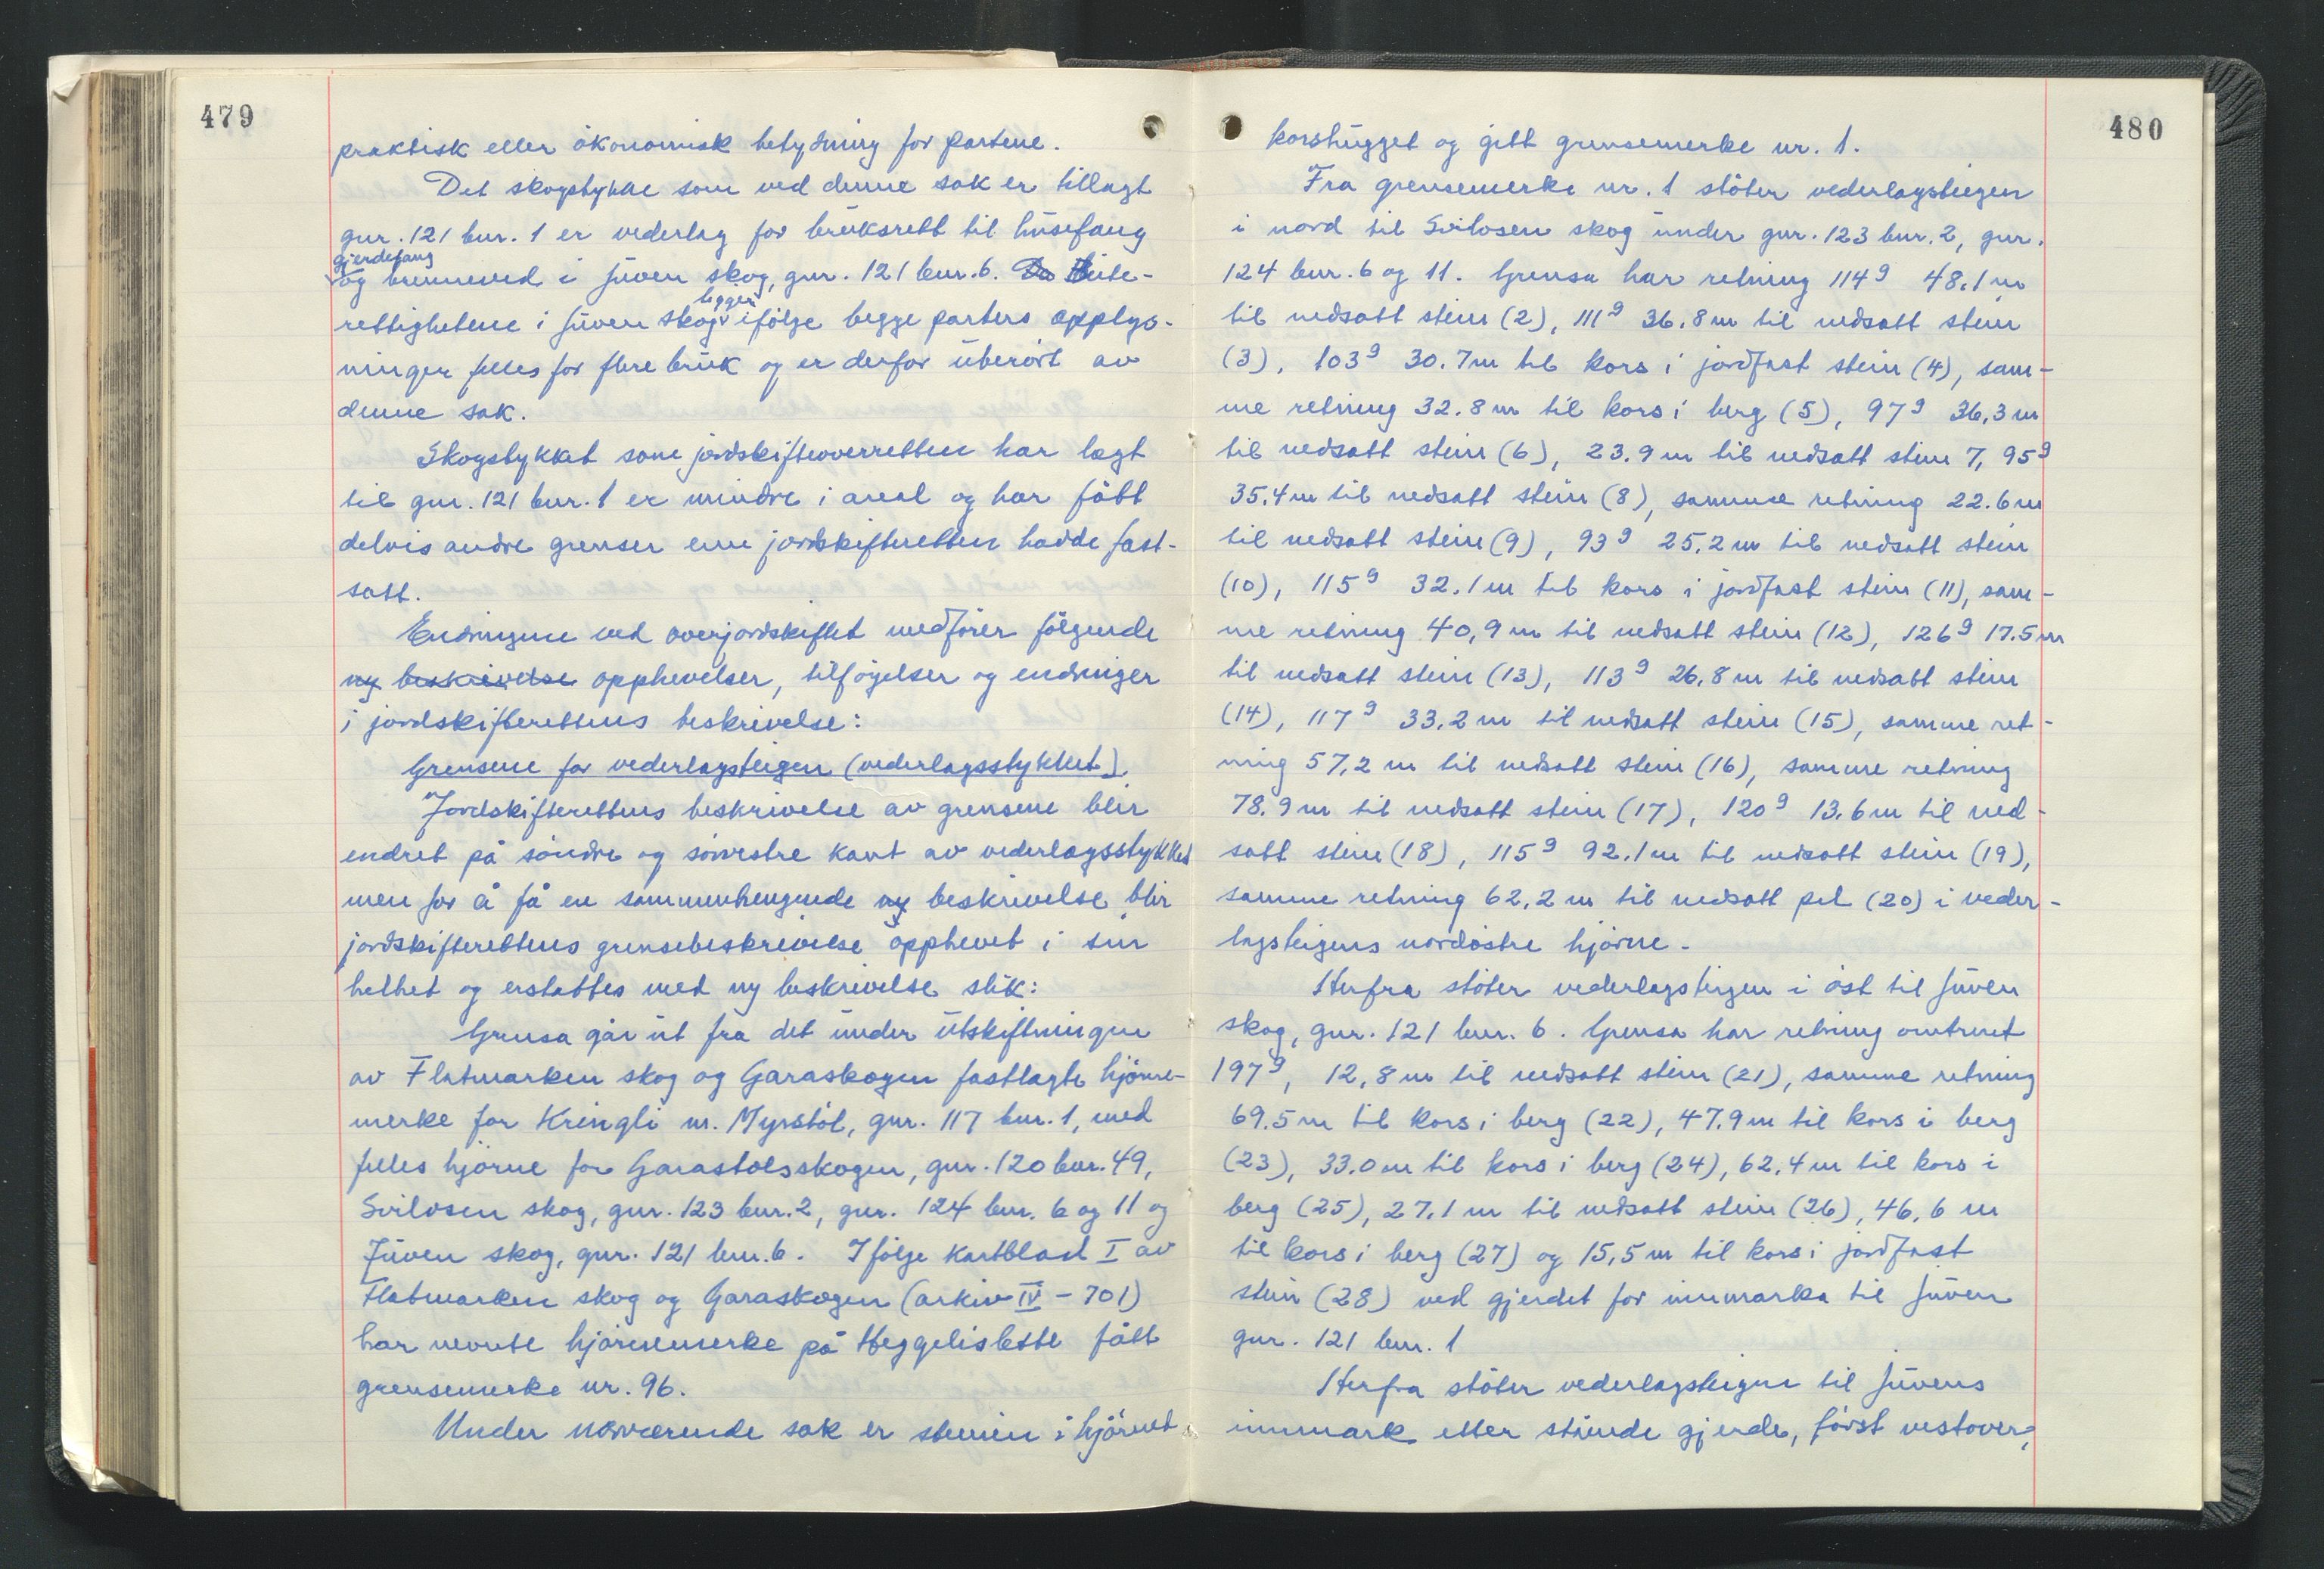 479
praktisk eller økonomisk betydning for partene.
Det skogstykke som ved denne sak er tillagt
gnr. 121 bnr. 1 er vederlag for bruksrett til husefang
gjerdefang
og brenneved i Juven skog, gnr. 121 bnr. 6. Da Beite-
ligger
rettighetene i Juven skog ifølge begge parters opplys-
ninger felles for flere bruk og er derfor uberört av
denne sak.
Skogstykket som jordskifteoverretten har lagt
til gnr. 121 bnr. 1 er mindre i areal og har fått
delvis andre grenser enn jordskifteretten hadde fast-
satt.
Endringene ved overjordskiftet medfører følgende
ny beskrivelse opphevelser, tilføyelser og endringer
i jordskifterettens beskrivelse:
Grensene for vederlagsteigen (vederlagsstykket).
Jordskifterettens beskrivelse av grensene blir
endret på søndre og sørvestre kant av vederlagsstykket
men for å få en sammenhengende ny beskrivelse blir
jordskifterettens grensebeskrivelse opphevet i sin
helhet og erstattes med ny beskrivelse slik:
Grensa går ut fra det under utskiftningen
av Flatmarken skog og Garaskogen fastlagte hjørne-
merke for Kringli m. Myrstöl, gnr. 117 bnr. 1, med
felles hjørne for Garastölsskogen, gnr. 120 bnr. 49,
Svilosen skog, gnr. 123 bnr. 2, gnr. 124 bnr. 6 og 11 og
Juven skog, gnr. 121 bnr. 6. Ifølge kartblad I av
Flatmarken skog og Garaskogen (arkiv IV - 701)
har nevnte hjørnemerke på Heggelislette fått
grensemerke nr. 96.
Under nærværende sak er steinen i hjörnet
480
korshugget og gitt grensemerke nr. 1.
Fra grensemerke nr. 1 støter vederlagsteigen
i nord til Svilosen skog under gnr. 123 bnr. 2, gnr.
124 bnr. 6 og 11. Grensa har retning 114g 48.1 m
til nedsatt stein (2), 111g 36.8 m til nedsatt stein
(3), 103g 30.7 m til kors i jordfast stein (4), sam-
me retning 32.8 m til kors i berg (5), 97g 36,3 m
til nedsatt stein (6), 23.9 m til nedsatt stein 7, 95g
35.4 m til nedsatt stein (8), samme retning 22.6 m
til nedsatt stein (9), 93g 25,2 m til nedsatt stein
(10), 115g 32.1 m til kors i jordfast stein (11), sam-
me retning 40,9 m til nedsatt stein (12), 126g 17.5 m
til nedsatt stein (13), 113g 26,8 m til nedsatt stein
(14), 117g 33,2 m til nedsatt stein (15), samme ret-
ning 57,2 m til nedsatt stein (16), samme retning
78.9 m til nedsatt stein (17), 120g 13,6 m til ned-
satt stein (18), 115g 92.1 m til nedsatt stein (19),
samme retning 62,2 m til nedsatt pel (20) i veder-
lagsteigens nordøstre hjørne.
Herfra støter vederlagsteigen i öst til Juven
skog, gnr. 121 bnr. 6. Grensa har retning omtrent
197g, 12,8 m til nedsatt stein (21), samme retning
69.5 m til kors i berg (22), 47.9 m til kors i berg
(23), 33.0 m til kors i berg (24), 62,4 m til kors i
berg (25), 27,1 m til nedsatt stein (26), 46,6 m
til kors i berg (27) og 15,5 m til kors i jordfast
stein (28) ved gjerdet for innmarka til Juven
gnr. 121 bnr. 1
Herfra støter vederlagsteigen til Juvens
innmark etter stående gjerde, først vestover,